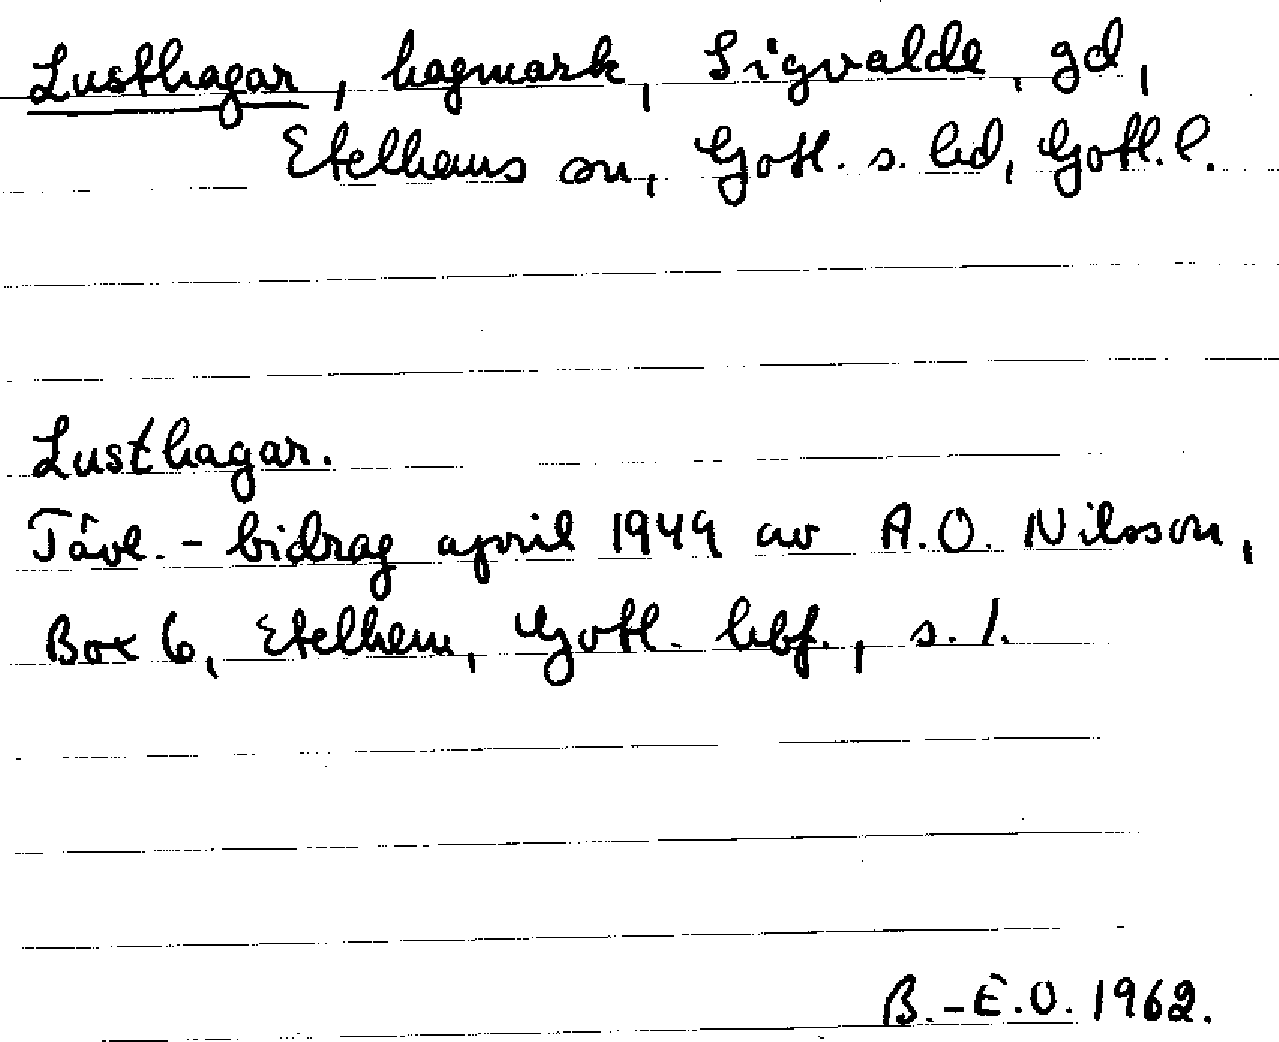 Lusthagar, hagmark, Sigvalde, gd,
Etelhems sn, Gotl. s. hd, Gotl. l.
Lusthagar.
Tävl. - bidrag april 1949 av A.O. Nilsson,
Box 6, Etelhem, Gotl. hbf., s. 1.
B.-E.O. 1962.